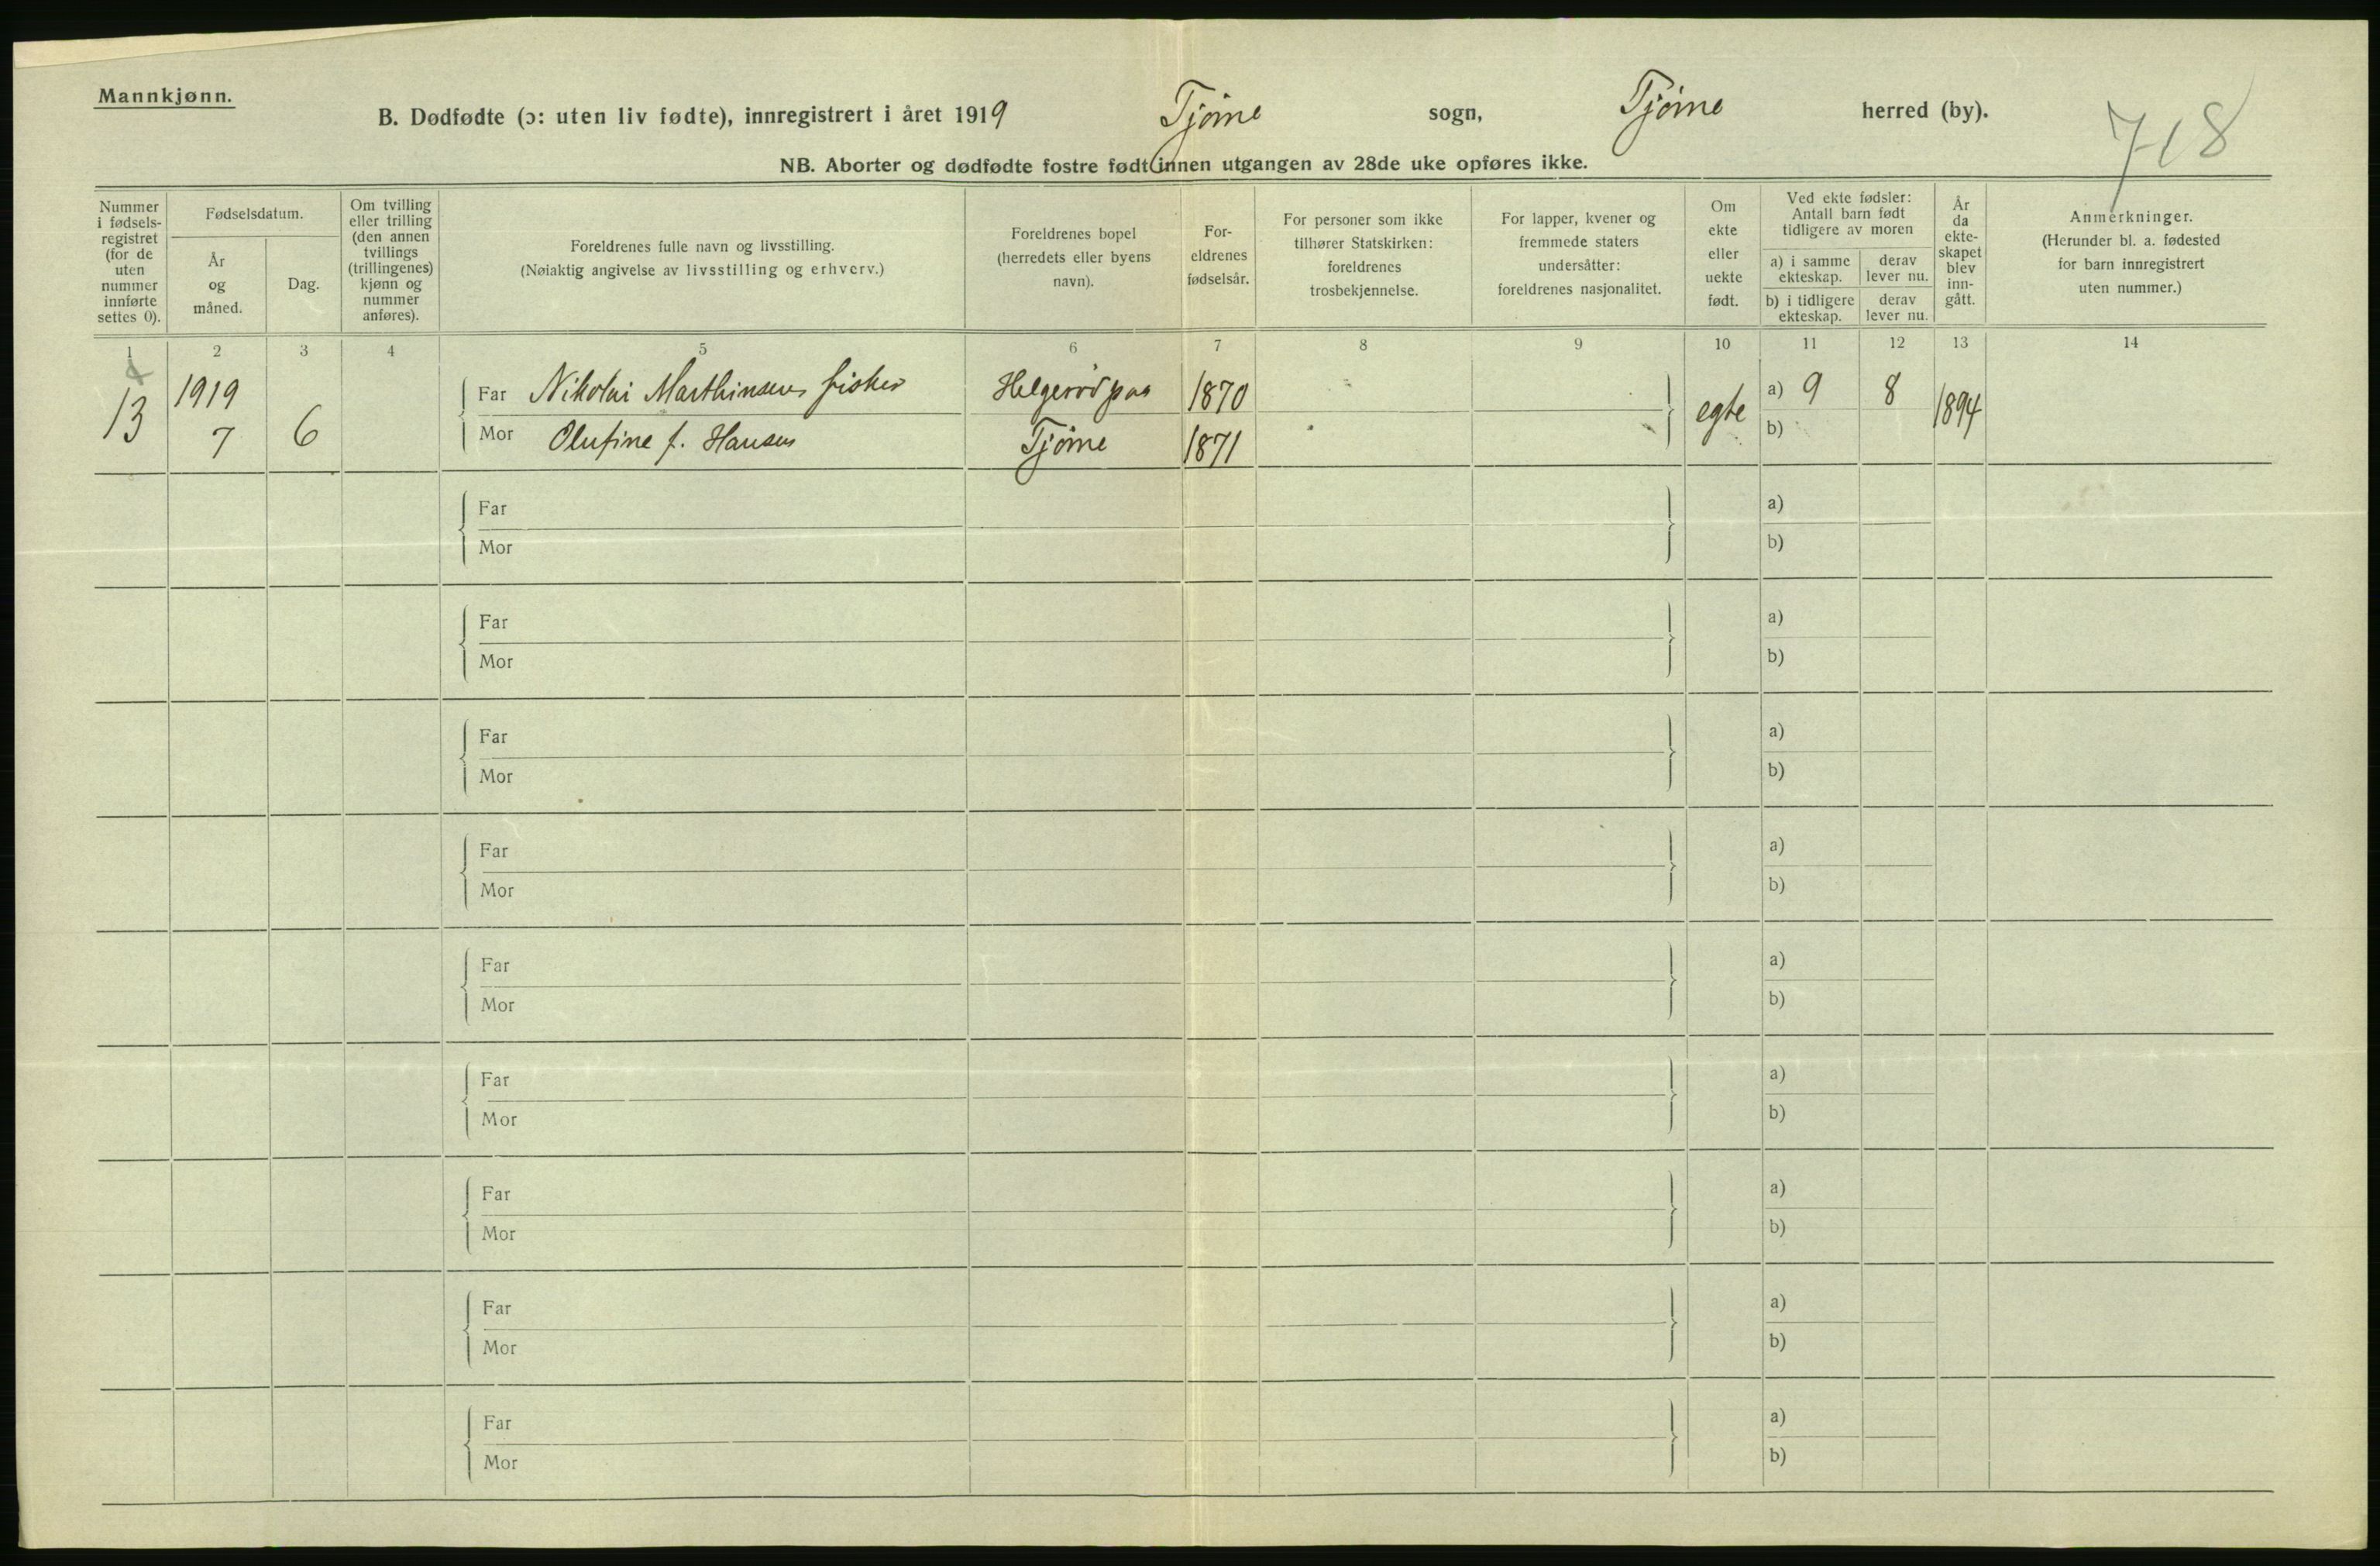 Mannkjønn.
B. Dødfødte (ɔ: uten liv fødte), innregistrert i året 1919 Tjöme sogn, Tjöme herred (by).
718
NB. Aborter og dødfødte fostre født innen utgangen av 28de uke opføres ikke.
Nummer i fødsels-registret (for de uten nummer innførte settes 0).
Fødselsdatum.
År og måned.
Dag.
Om tvilling eller trilling (den annen tvillings (trillingenes) kjønn og nummer anføres).
Foreldrenes fulle navn og livsstilling.
(Nøiaktig angivelse av livsstilling og erhverv.)
Foreldrenes bopel (herredets eller byens navn).
For-eldrenes fødselsår.
For personer som ikke tilhører Statskirken: foreldrenes trosbekjennelse.
For lapper, kvener og fremmede staters undersåtter: foreldrenes nasjonalitet.
Om ekte eller uekte født.
Ved ekte fødsler: Antall barn født tidligere av moren
a) i samme ekteskap.
derav lever nu.
b) i tidligere ekteskap.
derav lever nu.
År da ekte-skapet blev inn-gått.
Anmerkninger.
(Herunder bl. a. fødested for barn innregistrert uten nummer.)
1 2 3 4 5 6 7 8 9 10 11 12 13 14
13 1919 7 6
Far Nikolai Marthinsen fisker Helgeröd paa 1870 egte a) 9 8 1894
Mor Olufine f. Hansen Tjöme 1871 b)
Far a)
Mor b)
Far a)
Mor b)
Far a)
Mor b)
Far a)
Mor b)
Far a)
Mor b)
Far a)
Mor b)
Far a)
Mor b)
Far a)
Mor b)
Far a)
Mor b)